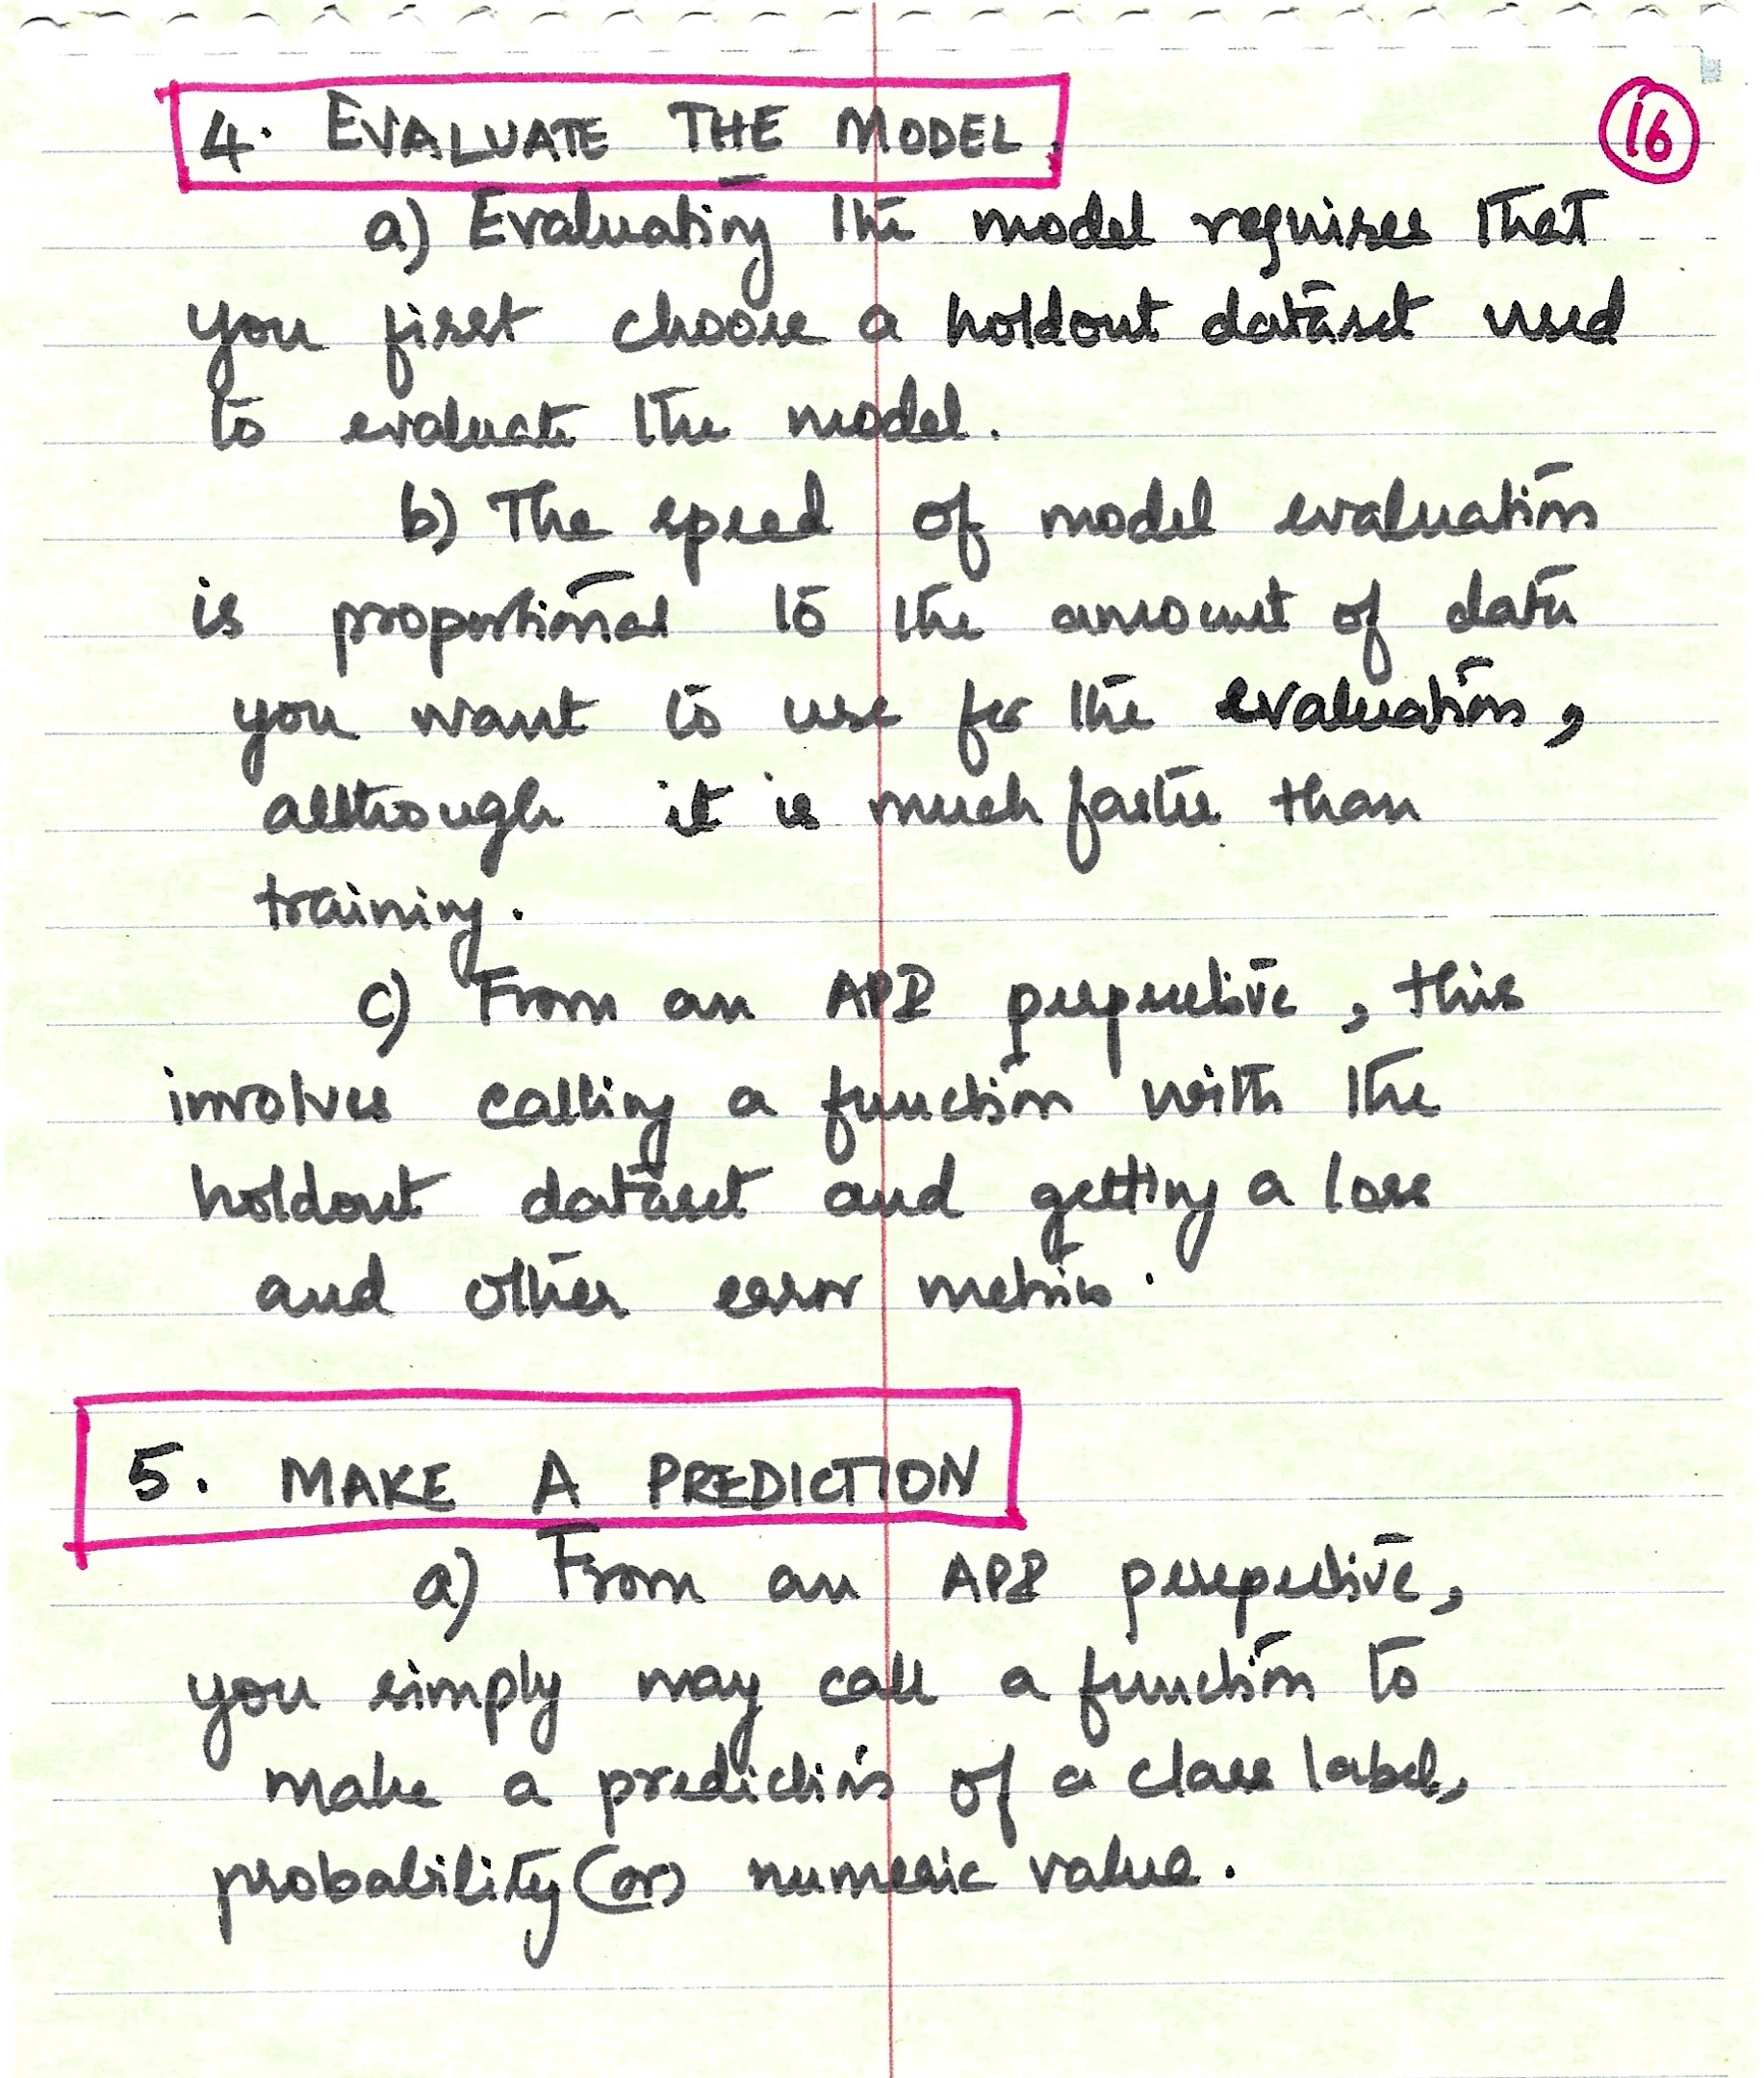 4. EVALUATE THE MODEL.
16
a) Evaluating the model requires that
you first choose a holdout dataset used
to evaluate the model.
b) The speed of model evaluation
is proportional to the amount of data
you want to use for the evaluation,
although it is much faster than
training.
c) From an API perspective, this
involves calling a function with the
holdout dataset and getting a loss
and other error metrics.
5. MAKE A PREDICTION
a) From an API perspective,
you simply may call a function to
make a prediction of a class label,
probability (or) numeric value.